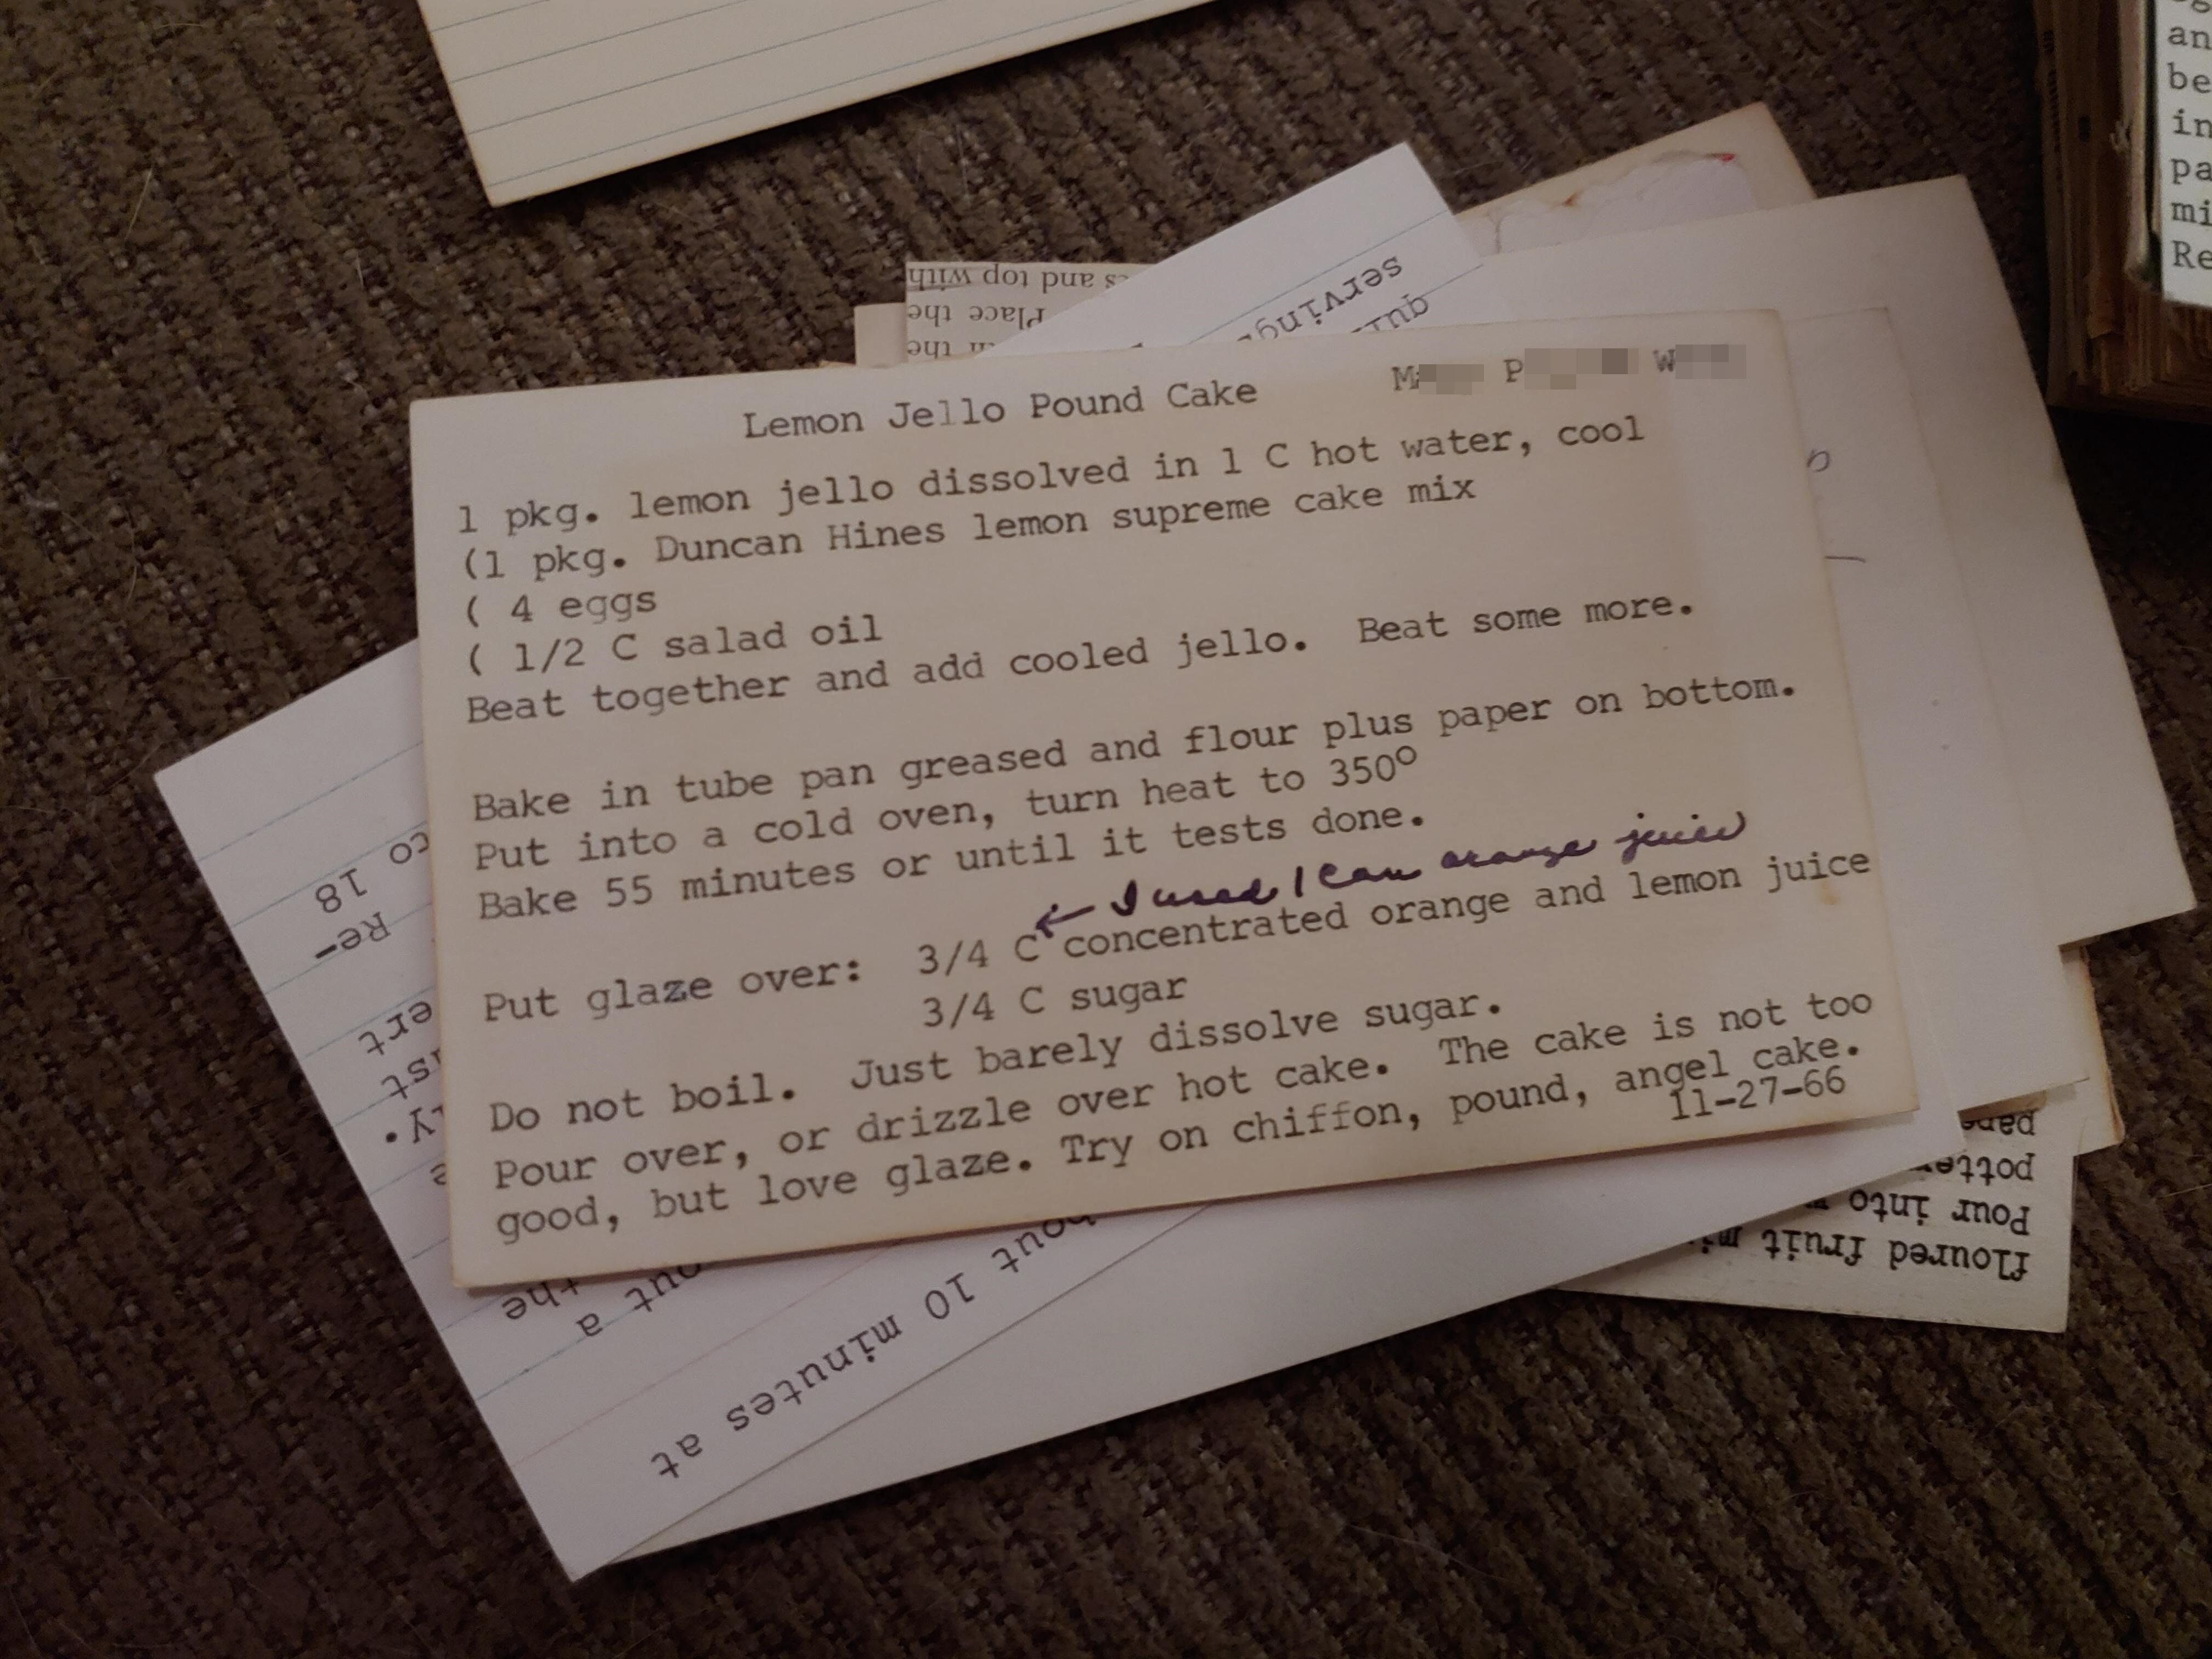 Lemon Jello Pound Cake
1 pkg. lemon jello dissolved in 1 C hot water, cool
(1 pkg. Duncan Hines lemon supreme cake mix
( 4 eggs
( 1/2 C salad oil
Beat together and add cooled jello. Beat some more.
Bake in tube pan greased and flour plus paper on bottom.
Put into a cold oven, turn heat to 350°
Bake 55 minutes or until it tests done.
← I used 1 can orange juice
Put glaze over: 3/4 C concentrated orange and lemon juice
3/4 C sugar
Do not boil. Just barely dissolve sugar.
Pour over, or drizzle over hot cake. The cake is not too
good, but love glaze. Try on chiffon, pound, angel cake.
11-27-66
s and top with
Place the
the
serving
to
18
Re-
out a
the
10 minutes at
Pour into
floured fruit
an
be
in
pa
mi
Re